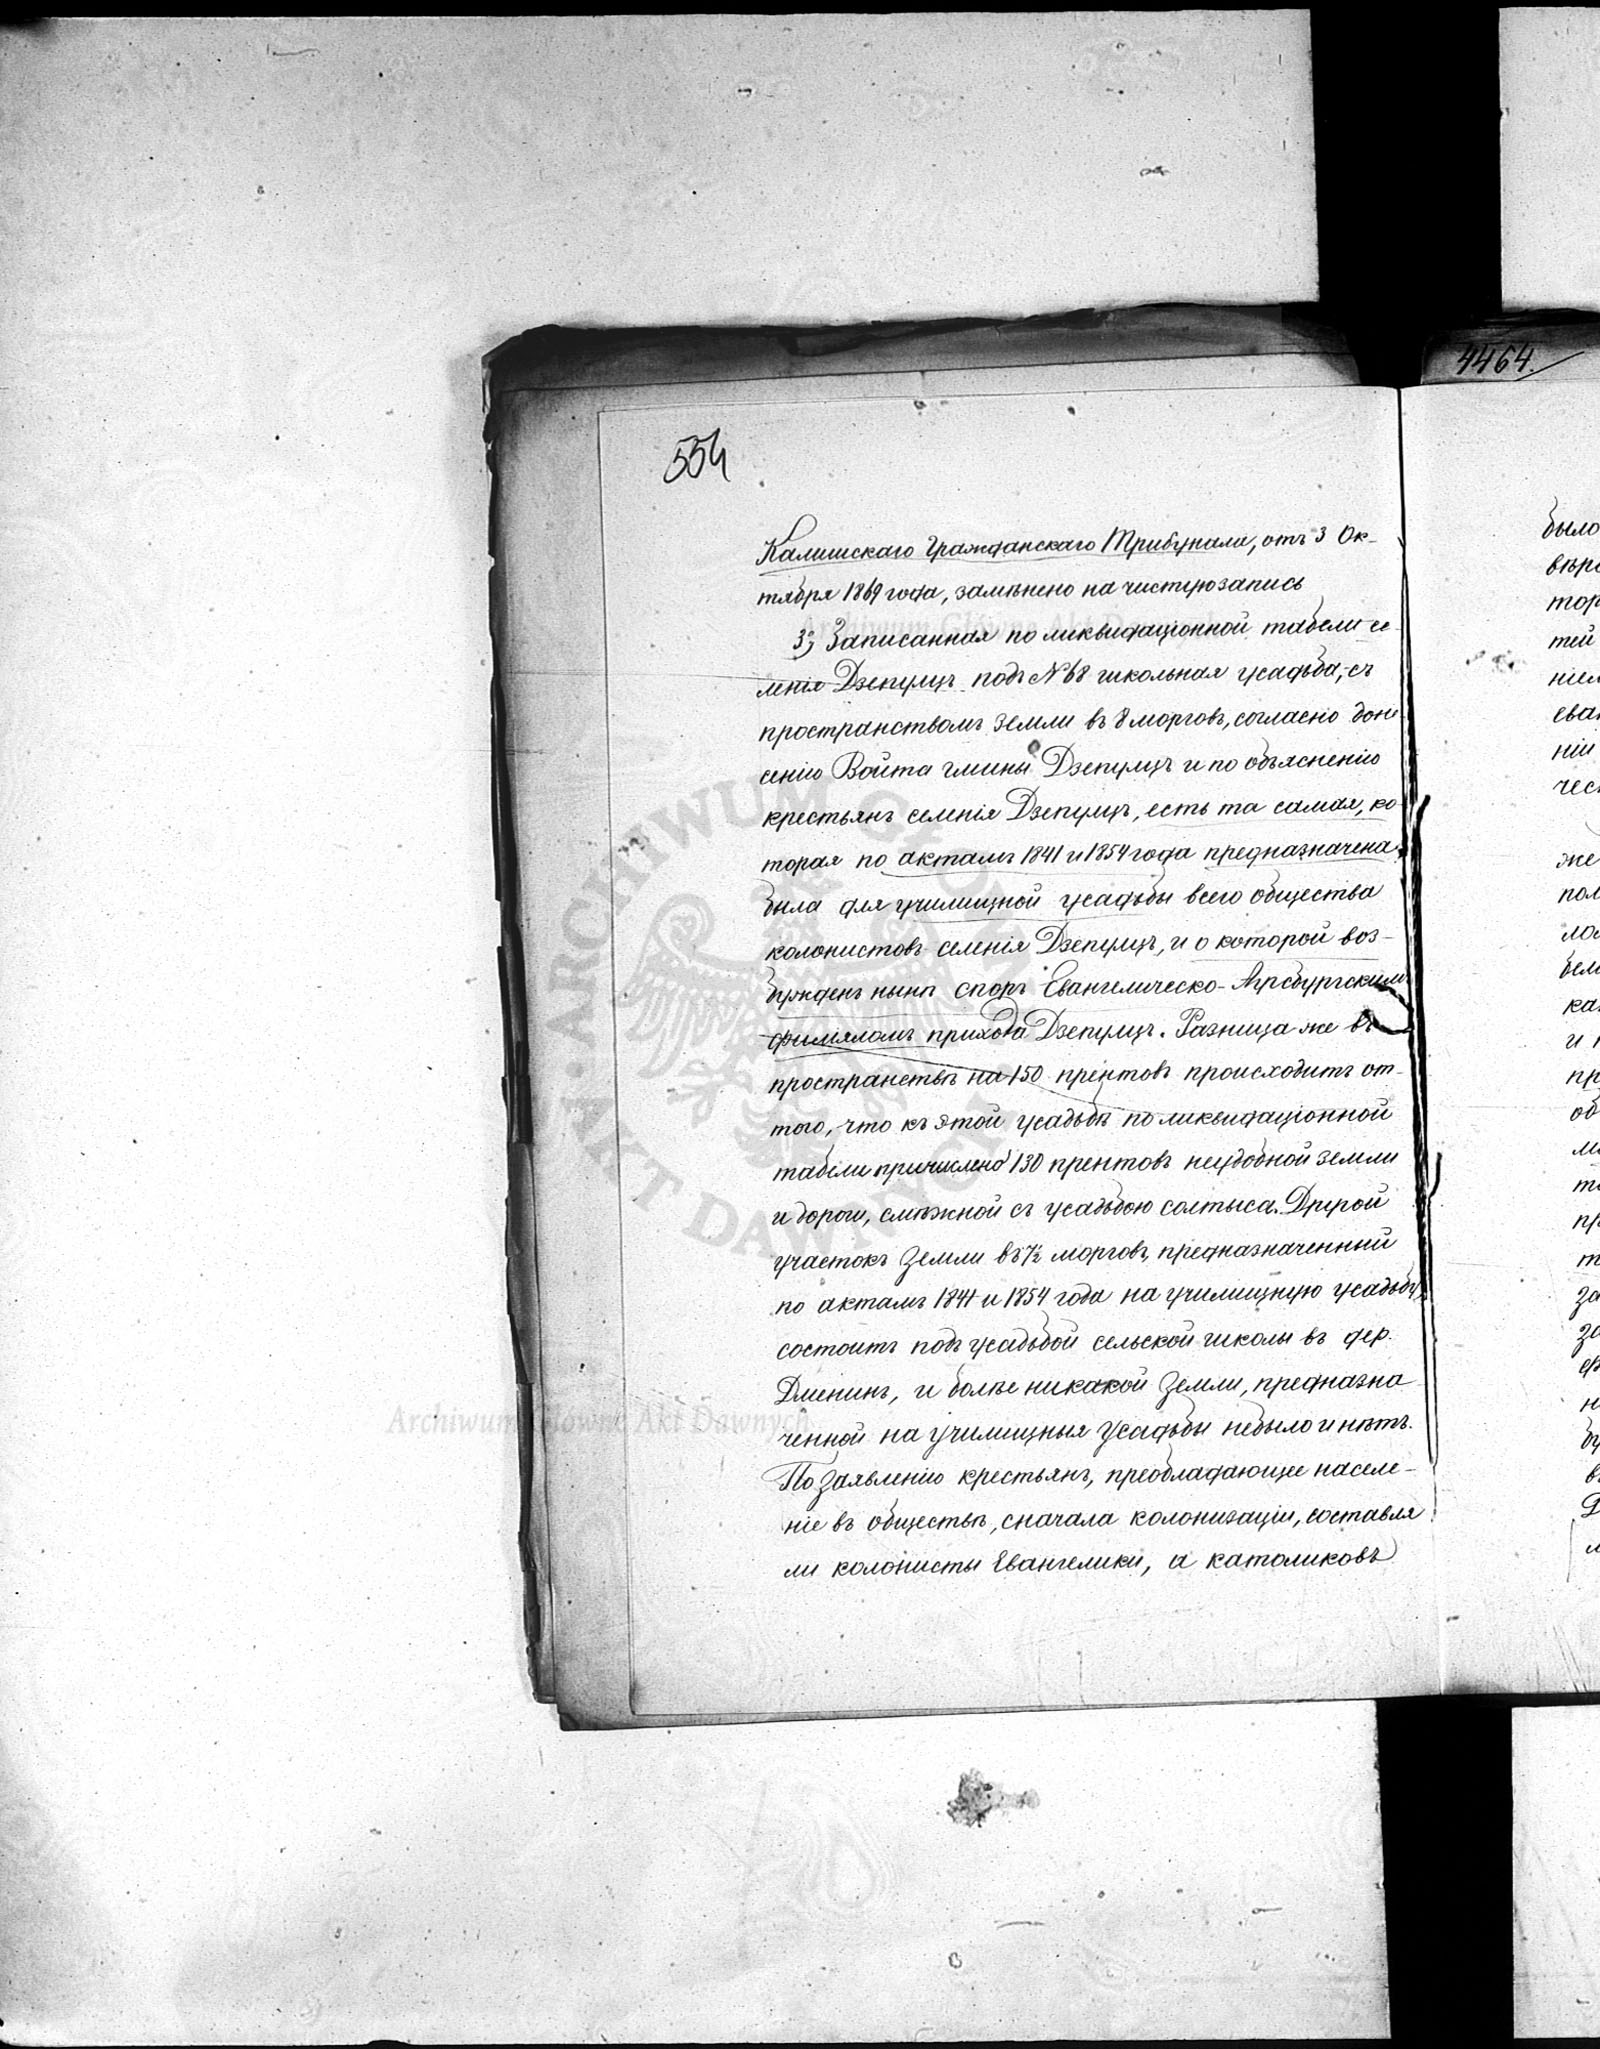 554
4464.
Калишскаго Гражданскаго Трибунала, отъ 3 Ок-
тября 1869 года, замѣнено на чистую запись
3º, Записанная по ликвидаціонной табели се-
ленія Дзепулць подъ №68 школьная усадьба, съ
пространствомъ земли въ 8 морговъ, согласно доне-
сенію Войта гмины Дзепулць и по объясненію
крестьянъ селенія Дзепулць, есть та самая, ко-
торая по актамъ 1841 и 1854 года предназначена
была для училищной усадьбы всего общества
колонистовъ селенія Дзепулць, и о которой воз-
бужденъ нынѣ споръ Евангелическо-Аугсбургскимъ
филяломъ прихода Дзепулць. Разница же въ
пространствѣ на 150 прентовъ происходитъ от-
того, что къ этой усадьбѣ по ликвидаціонной
табели причислено 130 прентовъ неудобной земли
и дороги, смѣжной съ усадьбою солтыса. Другой
участокъ земли въ 7½ морговъ, предназначенный
по актамъ 1841 и 1854 года на училищную усадьбу,
состоитъ подъ усадьбой сельской школы въ дер.
Дменинъ, и болѣе никакой земли, предназна
ченной на училищныя усадьбы небыло и нѣтъ.
По заявленію крестьянъ, преобладающее населе-
ніе въ обществѣ, сначала колонизаціи, составля
ли колонисты Евангелики, а католиковъ
было
же
и
Archiwum Główne Akt Dawnych
ARCHIWUM GŁÓWNE AKT DAWNYCH